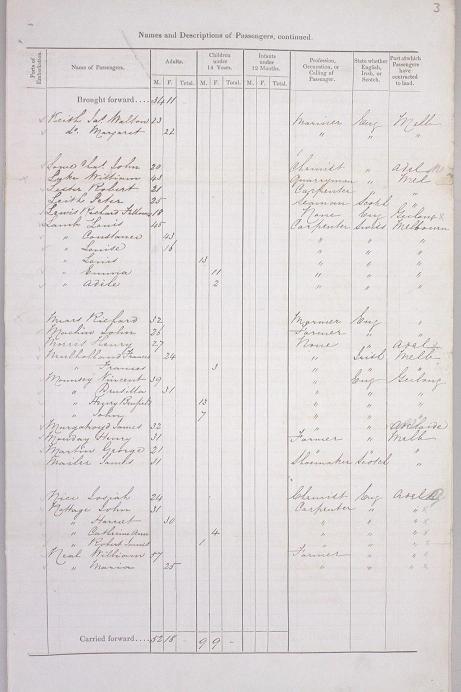 3
Names and Descriptions of Passengers, continued.
Ports of Embarkation. Names of Passengers. Adults. Children under 14 Years. Infants under 12 Months. Profession, Occupation, or Calling of Passenger. State whether English, Irish, or Scotch. Port at which Passengers have contracted to land.
M. F. Total. M. F. Total. M. F. Total.
Brought forward.... 34 11
Keith Walton 23 Mariner Eng Melb
do Margaret 22 " "
John 20 Chemist " Adel
Lyke William 43 Quarryman " Mel
Lester Robert 21 Carpenter "
Leith Peter 25 Seaman Scotd "
Lewis Richard 18 None Eng Geelong
Lamb Louis 45 Carpenter Melbourne
" Constance 43 " " "
" Louise 16 " " "
" Louis 13 " " "
" Emma 11 " " "
" Adile 2 " " "
Mears Richard 32 Mariner Eng "
Machin John 26 Farmer " "
Morris Henry 27 None " Adel
Mulholland Frances 24 " Irish Melb
" Frances 3 " " "
Mounsey Vincent 39 " Eng Geelong
" Drusilla 31 " " "
" Henry 13 " " "
" John 7 " " "
James 32 " " Adelaide
Monday Henry 31 Farmer " Melb
Martin George 21 " " "
James 31 Shoemaker Scotch "
Nice Josiah 24 Chemist Eng Adel
Nottage John 31 Carpenter " "
" Harriet 30 " " "
" Catherine Ann 4 " " "
" Robert James 1 " " "
Neal William 27 Farmer " "
" Maria 25 " " "
Carried forward.... 52 18 - 9 9 -